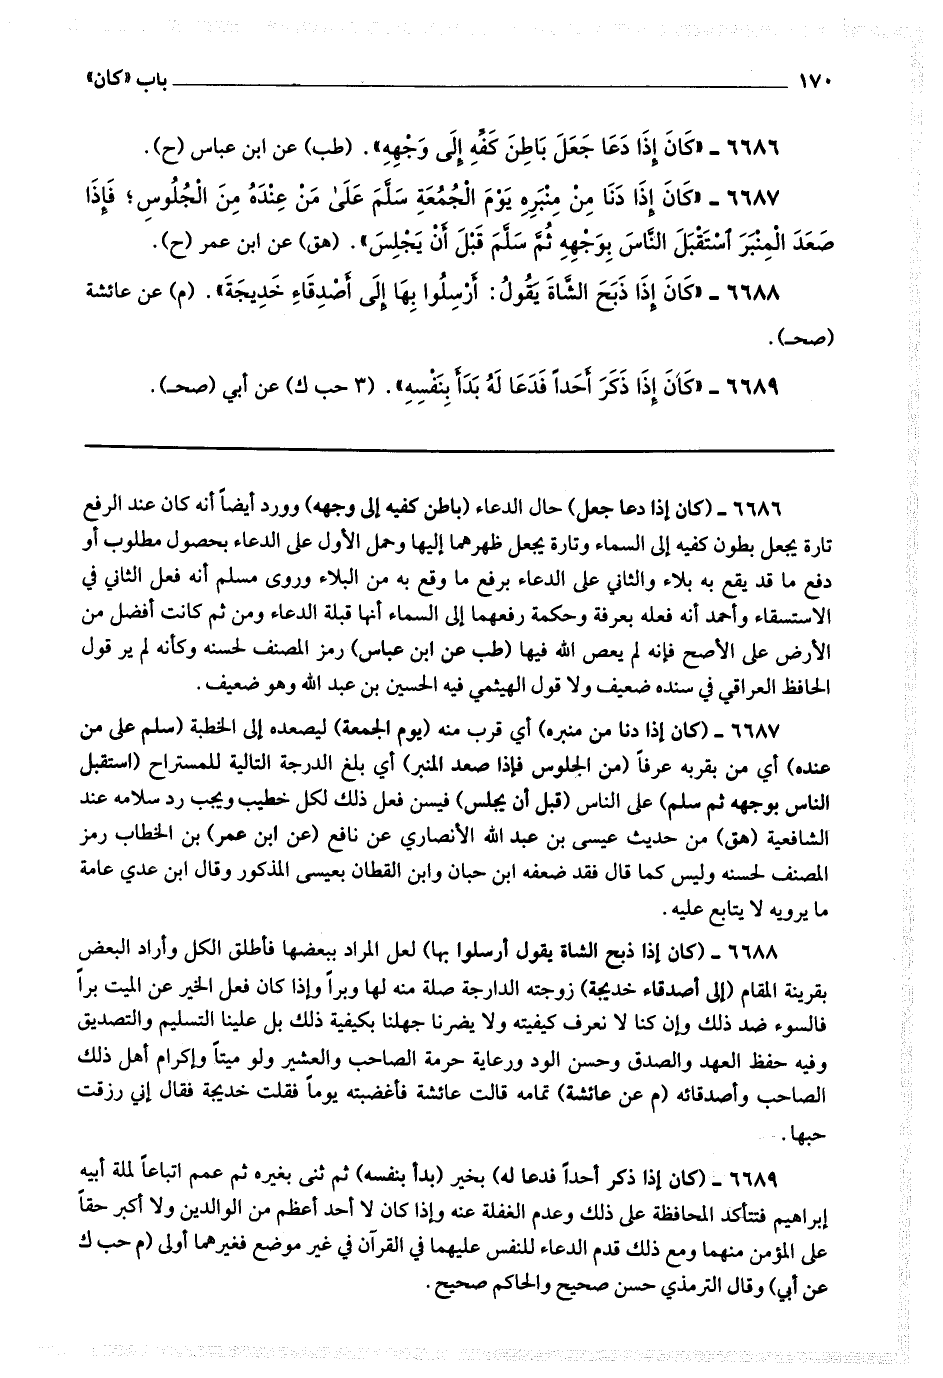 ١٧٠ باب «كان»
٦٦٨٦ ـ «كَانَ إِذَا دَعَا جَعَلَ بَاطِنَ كَفِّهِ إِلَى وَجْهِهِ». (طب) عن ابن عباس (ح).
٦٦٨٧ ـ «كَانَ إِذَا دَنَا مِنْ مِنْبَرِهِ يَوْمَ الْجُمُعَةِ سَلَّمَ عَلَىٰ مَنْ عِنْدَهُ مِنَ الْجُلُوسِ؛ فَإِذَا
صَعَدَ الْمِنْبَرَ ٱسْتَقْبَلَ النَّاسَ بِوَجْهِهِ ثُمَّ سَلَّمَ قَبْلَ أَنْ يَجْلِسَ». (هق) عن ابن عمر (ح).
٦٦٨٨ ـ «كَانَ إِذَا ذَبَحَ الشَّاةَ يَقُولُ: أَرْسِلُوا بِهَا إِلَى أَصْدِقَاءِ خَدِيجَةَ». (م) عن عائشة
(صحـ).
٦٦٨٩ ـ «كَانَ إِذَا ذَكَرَ أَحَداً فَدَعَا لَهُ بَدَأَ بِنَفْسِهِ». (٣ حب ك) عن أبي (صحـ).
٦٦٨٦ ـ (كان إذا دعا جعل) حال الدعاء (باطن كفيه إلى وجهه) وورد أيضاً أنه كان عند الرفع
تارة يجعل بطون كفيه إلى السماء وتارة يجعل ظهرهما إليها وحمل الأول على الدعاء بحصول مطلوب أو
دفع ما قد يقع به بلاء والثاني على الدعاء برفع ما وقع به من البلاء وروى مسلم أنه فعل الثاني في
الاستسقاء وأحمد أنه فعله بعرفة وحكمة رفعهما إلى السماء أنها قبلة الدعاء ومن ثم كانت أفضل من
الأرض على الأصح فإنه لم يعص الله فيها (طب عن ابن عباس) رمز المصنف لحسنه وكأنه لم ير قول
الحافظ العراقي في سنده ضعيف ولا قول الهيثمي فيه الحسين بن عبد الله وهو ضعيف.
٦٦٨٧ ـ (كان إذا دنا من منبره) أي قرب منه (يوم الجمعة) ليصعده إلى الخطبة (سلم على من
عنده) أي من بقربه عرفاً (من الجلوس فإذا صعد المنبر) أي بلغ الدرجة التالية للمستراح (استقبل
الناس بوجهه ثم سلم) على الناس (قبل أن يجلس) فيسن فعل ذلك لكل خطيب ويجب رد سلامه عند
الشافعية (هق) من حديث عيسى بن عبد الله الأنصاري عن نافع (عن ابن عمر) بن الخطاب رمز
المصنف لحسنه وليس كما قال فقد ضعفه ابن حبان وابن القطان بعيسى المذكور وقال ابن عدي عامة
ما يرويه لا يتابع عليه.
٦٦٨٨ ـ (كان إذا ذبح الشاة يقول أرسلوا بها) لعل المراد ببعضها فأطلق الكل وأراد البعض
بقرينة المقام (إلى أصدقاء خديجة) زوجته الدارجة صلة منه لها وبراً وإذا كان فعل الخير عن الميت براً
فالسوء ضد ذلك وإن كنا لا نعرف كيفيته ولا يضرنا جهلنا بكيفية ذلك بل علينا التسليم والتصديق
وفيه حفظ العهد والصدق وحسن الود ورعاية حرمة الصاحب والعشير ولو ميتاً وإكرام أهل ذلك
الصاحب وأصدقائه (م عن عائشة) تمامه قالت عائشة فأغضبته يوماً فقلت خديجة فقال إني رزقت
حبها.
٦٦٨٩ ـ (كان إذا ذكر أحداً فدعا له) بخير (بدأ بنفسه) ثم ثنى بغيره ثم عمم اتباعاً لملة أبيه
إبراهيم فتتأكد المحافظة على ذلك وعدم الغفلة عنه وإذا كان لا أحد أعظم من الوالدين ولا أكبر حقاً
على المؤمن منهما ومع ذلك قدم الدعاء للنفس عليهما في القرآن في غير موضع فغيرهما أولى (م حب ك
عن أبي) وقال الترمذي حسن صحيح والحاكم صحيح.